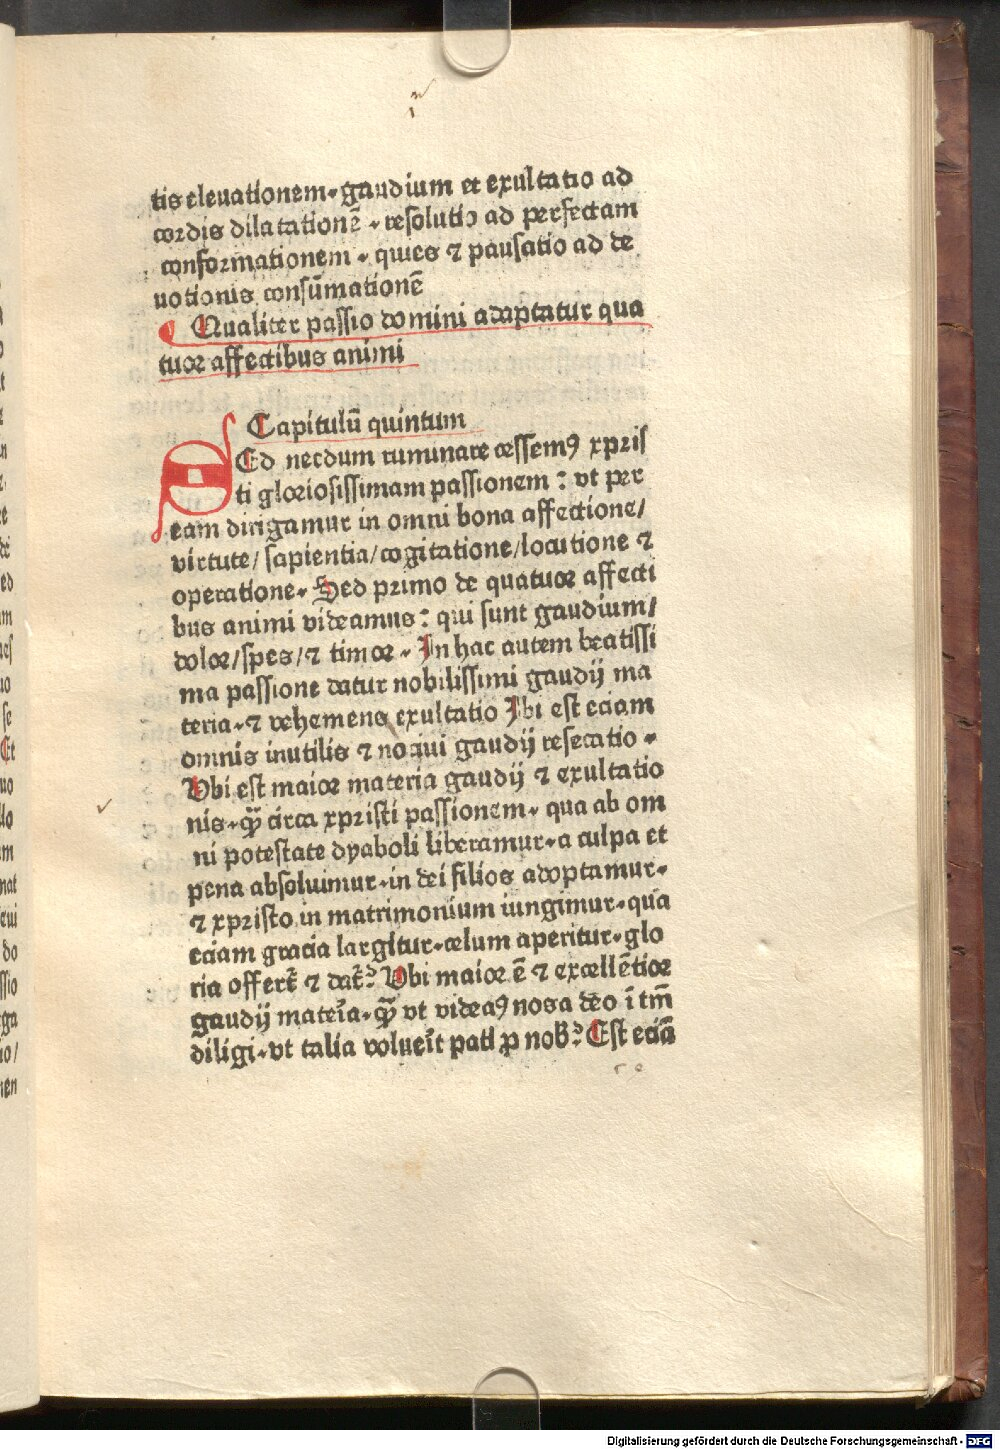 tis eleuationem. gaudium et exultatio ad
cordis dilatationē. resolutio ad perfectam
conformationem. quies ⁊ pausatio ad de
uotionis consūmationē
Qualiter passio domini adaptatur qua
tuor affectibus animi
Capitulū quintum
SEd necdum ruminare cessemꝰ xpris
ti gloriosissimam passionem: vt per
eam dirigamur in omni bona affectione/
virtute/ sapientia/ cogitatione/ locutione ⁊
operatione. Sed primo de quatuor affecti
bus animi videamus: qui sunt gaudium/
dolor/ spes/ ⁊ timor. In hac autem beatissi
ma passione datur nobilissimi gaudij ma
teria. ⁊ vehemens exultatio Ibi est eciam
omnis inutilis ⁊ noqui gaudij resecatio.
Vbi est maior materia gaudij ⁊ exultatio
nis. ꝙ̄ circa xpristi passionem. qua ab om
ni potestate dyaboli liberamur. a culpa et
pena absoluimur. in dei filios adoptamur.
⁊ xpristo in matrimonium iungimur. qua
eciam gracia largitur. celum aperitur. glo
ria offert̄ ⁊ dat̄? Vbi maior ē ⁊ excellētior
gaudij mater̄ia. ꝙ̄ vt videaꝰ nos a deo ī tm̄
diligi. vt talia voluer̄it pati ꝓ nob? Est eciā
Digitalisierung gefördert durch die Deutsche Forschungsgemeinschaft - DFG